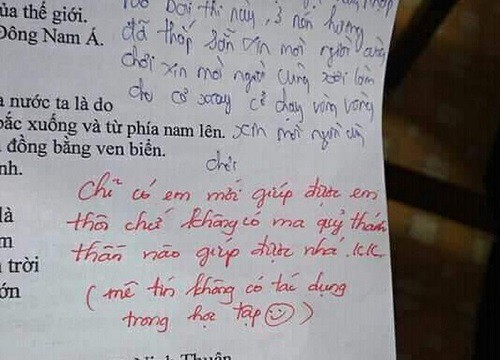 ủa thế giới.
Đông Nam Á.
bài thi này, 3 nén hương
đã thắp sẵn xin mời người cùng
chơi xin mời người cùng xới lầm
cho cơ xoay cơ chạy vòng vòng
xin mời người
chơi
nước ta là do
bắc xuống và từ phía nam lên.
đồng bằng ven biển.
nh.
Chỉ có em mới giúp được em
thôi chứ không có ma quỷ thánh
thần nào giúp được nhá. KK
(mê tín không có tác dụng
trong học tập ☺)
là
m
trời
ớn
Ninh Thuận